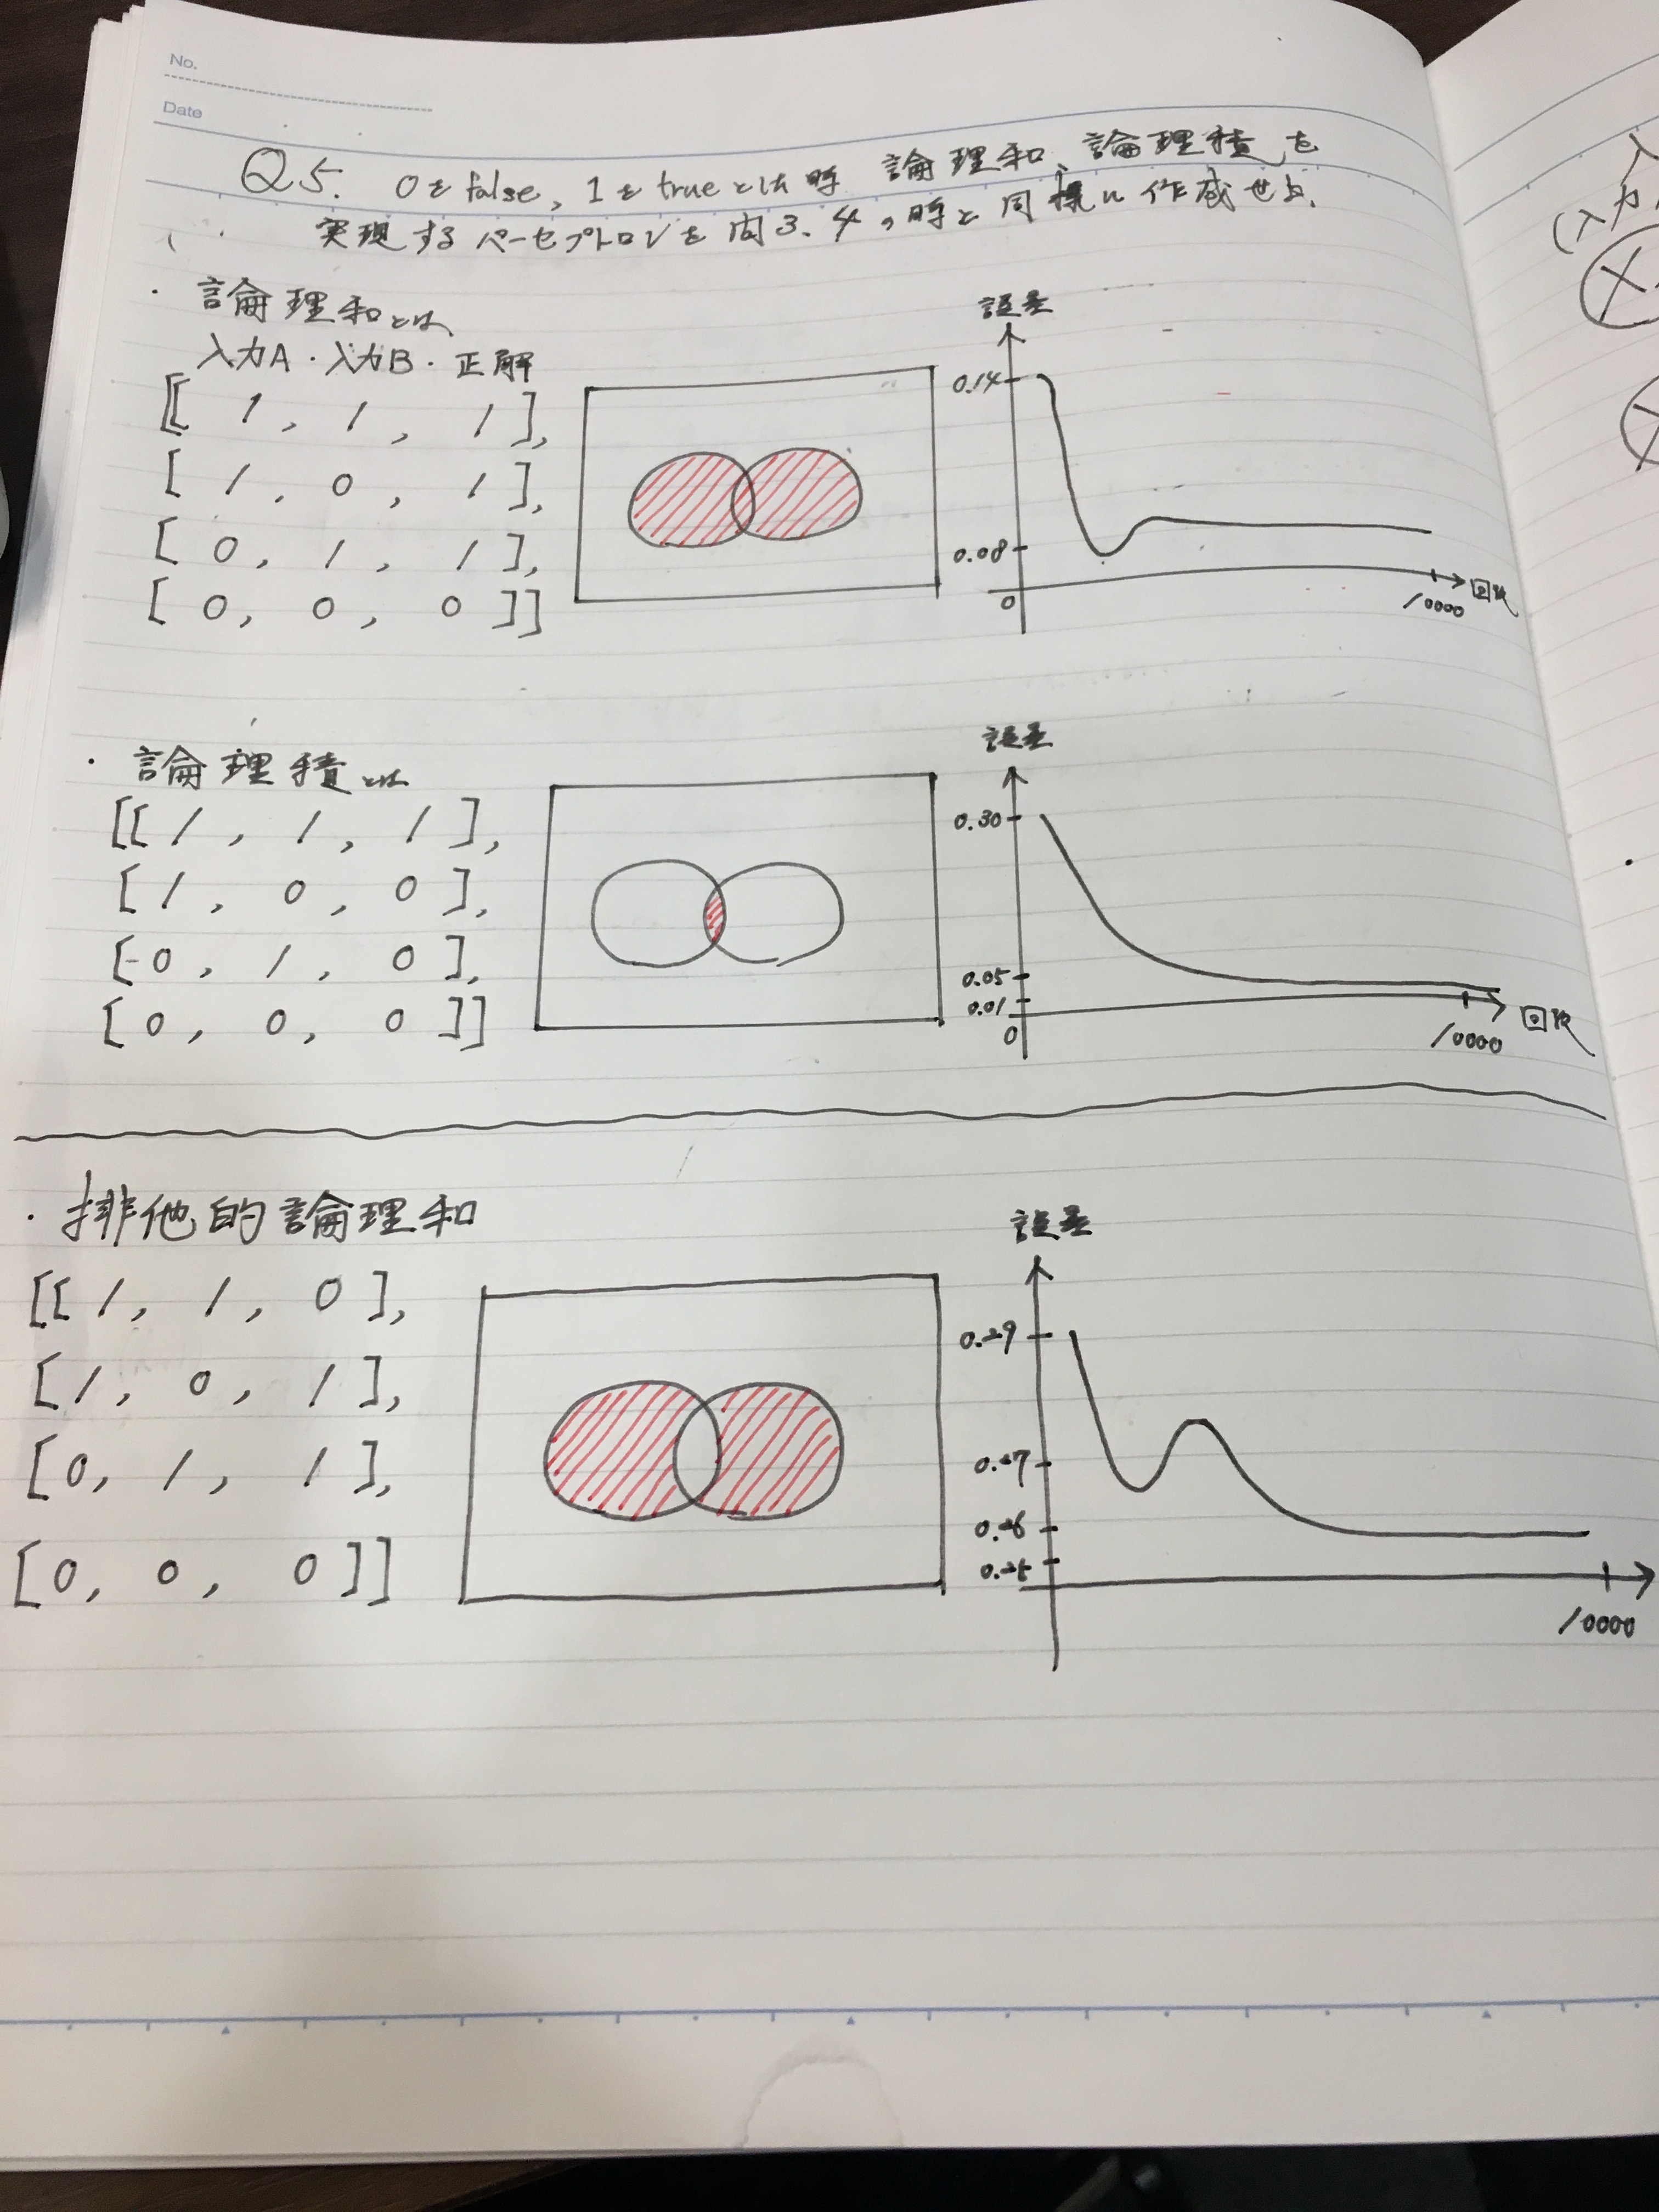 No.
Date
Q5. 0をfalse, 1をtrueとした時 論理和、論理積を
実現するパーセプトロンを問3.4の時と同様に作成せよ.
・論理和とは、
入力A・入力B・正解
[[ 1, 1, 1 ],
[ 1, 0, 1 ],
[ 0, 1, 1 ],
[ 0, 0, 0 ]]
誤差
0.14
0.08
0
10000
回数
・論理積とは
[[ 1, 1, 1 ],
[ 1, 0, 0 ],
[ 0, 1, 0 ],
[ 0, 0, 0 ]]
誤差
0.30
0.05
0.01
0
10000
回数
・排他的論理和
[[ 1, 1, 0 ],
[ 1, 0, 1 ],
[ 0, 1, 1 ],
[ 0, 0, 0 ]]
誤差
0.29
0.27
0.26
0.25
10000
入力